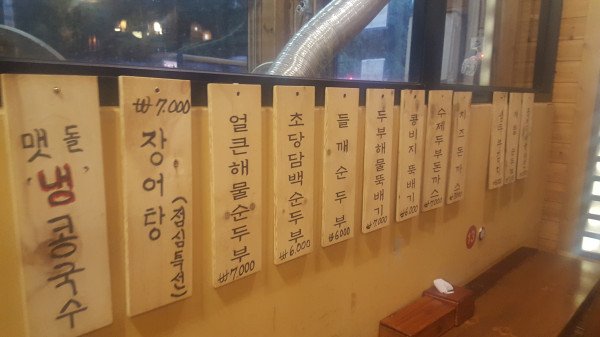 맷돌
냉콩국수
₩7.000
장어탕
(점심특선)
얼큰해물순두부
₩7.000
초당담백순두부
₩6.000
들깨순두부
₩6.000
두부해물뚝배기
₩7.000
콩비지뚝배기
₩6.000
수제두부돈까스
₩7.000
치즈돈까스